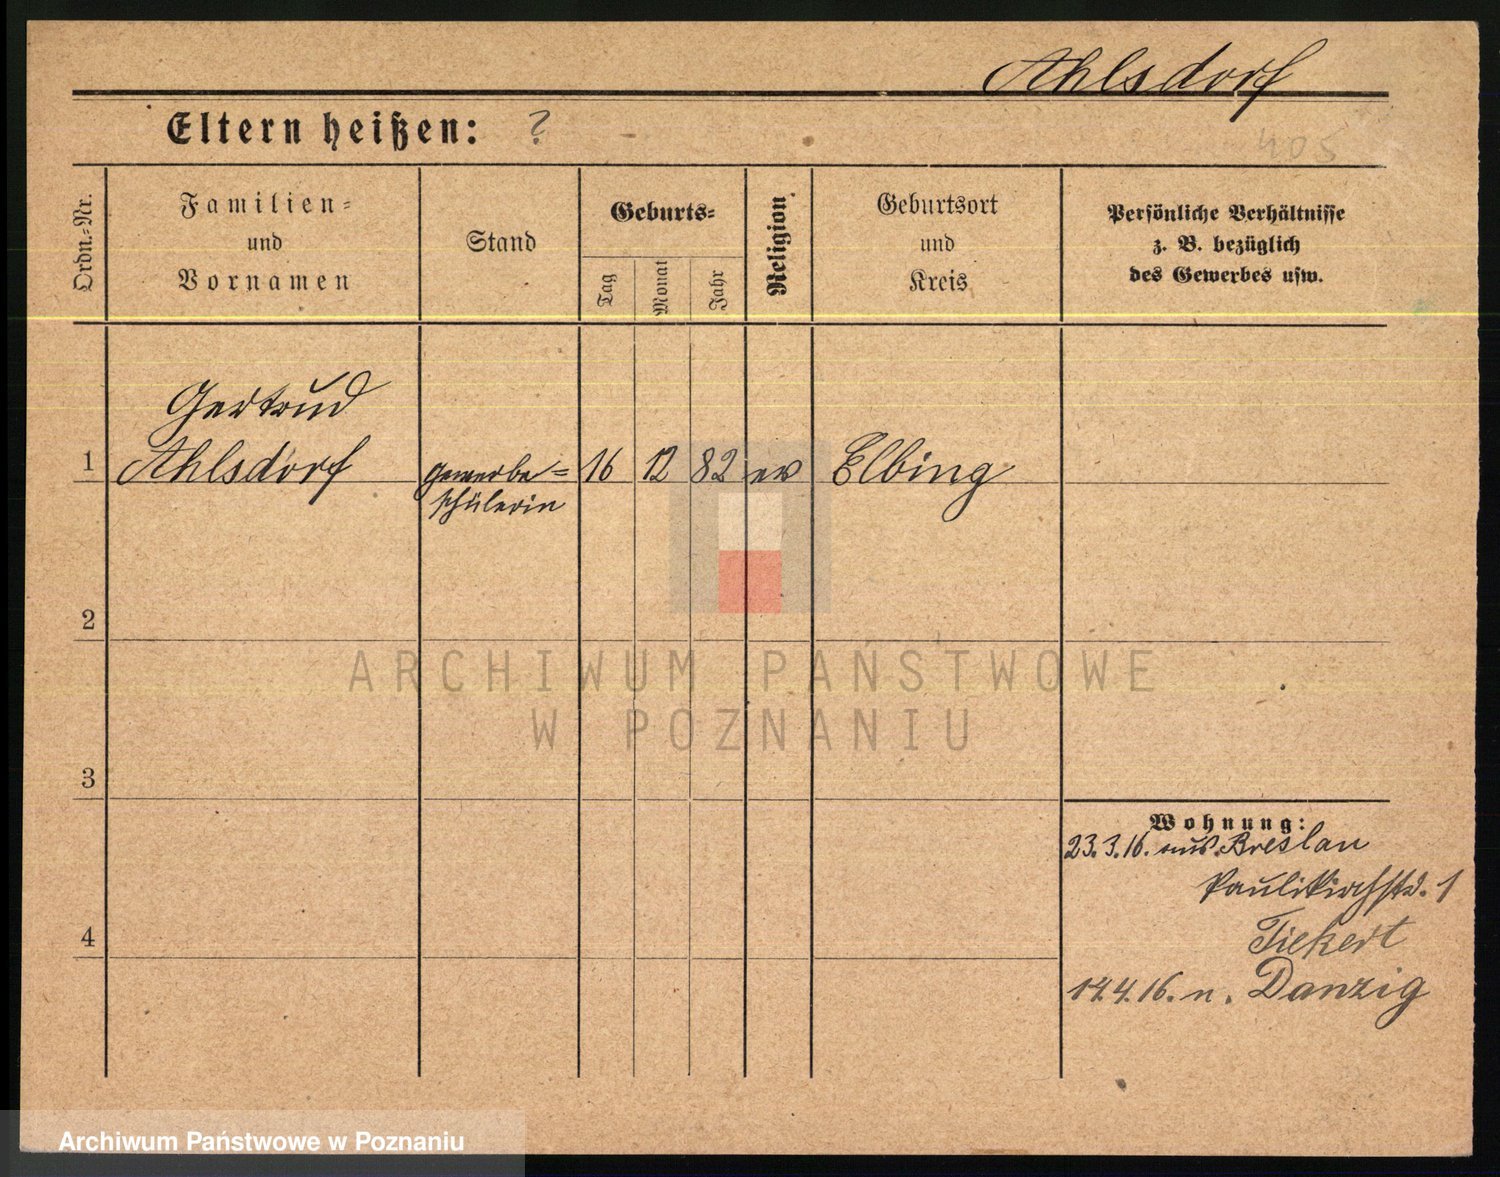 Ahlsdorf
Eltern heißen: ?
405
Ordn.-Nr.
Familien-
und
Vornamen
Stand
Geburts-
Tag
Monat
Jahr
Religion
Geburtsort
und
Kreis
Persönliche Verhältnisse
z. B. bezüglich
des Gewerbes usw.
Gertrud
1 Ahlsdorf Gewerbe= 16 12 82 ev Elbing
schülerin
2
ARCHIWUM PAŃSTWOWE
W POZNANIU
3
Wohnung:
23.3.16. aus Breslau
Paulikirchstr. 1
4
Tiekert
14.4.16. n. Danzig
Archiwum Państwowe w Poznaniu